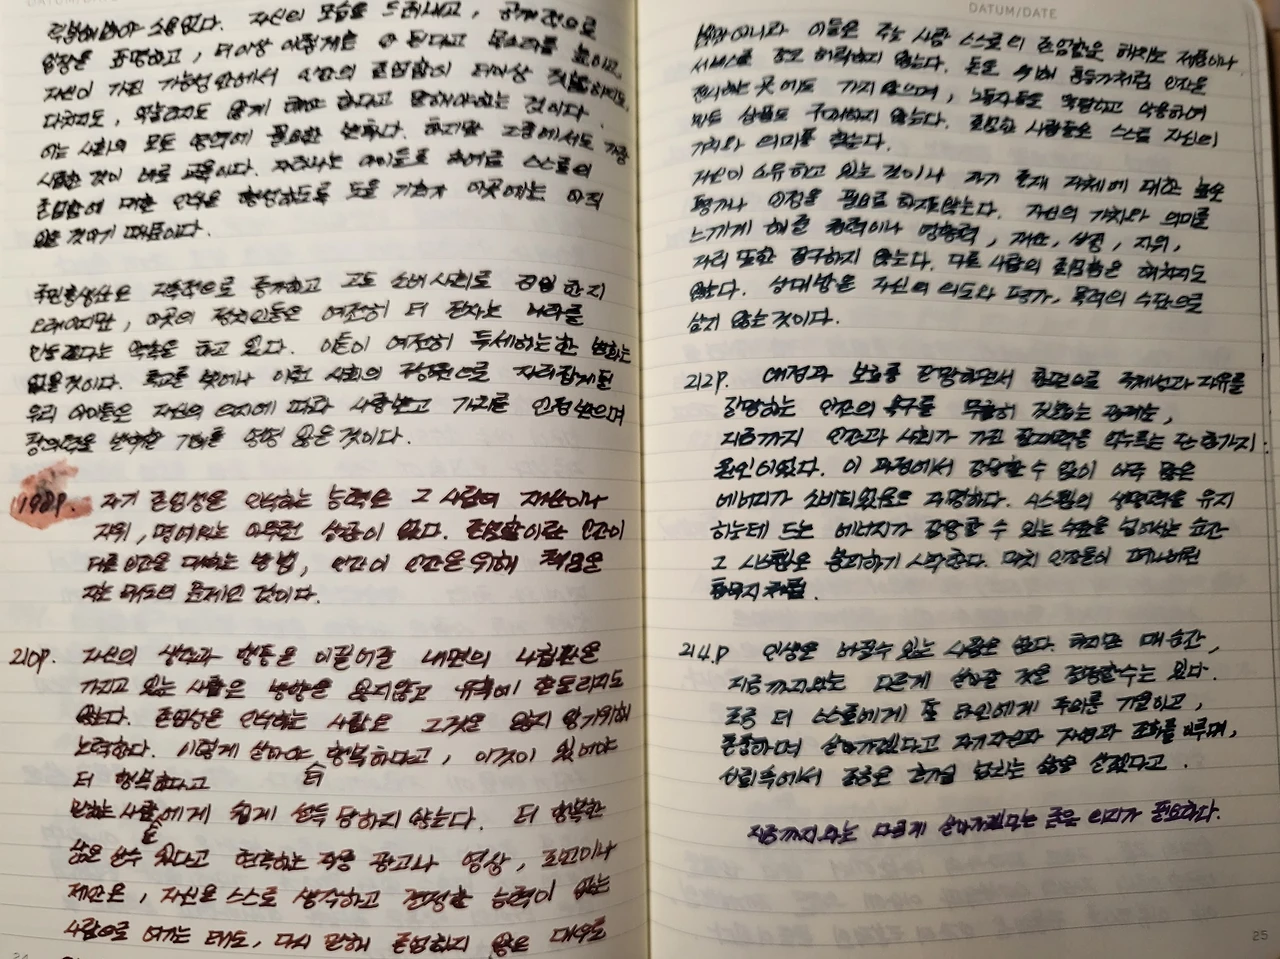 소용없다. 자신의 모습을 드러내고, 공개적으로
입장을 표명하고, 더이상 이렇게는 안 된다고 목소리를 높이고,
자신이 가진 가능성 안에서 인간의 존엄함이 더이상 짓밟히지도,
다치지도, 않게 해야 한다고 말해야하는 것이다.
이는 사회의 모든 영역에 필요한 변화다. 하지만 그중에서도 가장
시급한 것이 바로 교육이다. 자라나는 아이들로 하여금 스스로의
존엄함에 대한 인식을 형성하도록 도울 기회가 이곳에는 아직
없을 것이기 때문이다.
국민총생산은 지속적으로 증가하고 고도 소비사회로 진입한지
오래이지만, 이곳의 정치인들은 여전히 더 잘사는 나라를
만들겠다는 약속을 하고 있다. 이들이 여전히 득세하는한 변화는
없을 것이다. 학교를 벗어나 이런 사회의 구성원으로 자리잡게 된
우리 아이들은 자신의 의지에 따라 사랑받고 가치를 인정받으며
창의력을 발휘할 기회를 영영 잃을 것이다.
198P. 자기 존엄성을 인식하는 능력은 그 사람의 재산이나
지위, 명예와는 아무런 상관이 없다. 존엄함이란 인간이
다른 인간을 대하는 방법, 인간이 인간을 위해 책임을
지는 태도의 문제인 것이다.
210P. 자신의 생각과 행동을 이끌어줄 내면의 나침반을
가지고 있는 사람은 방향을 잃지않고 유혹에 흔들리지도
않는다. 존엄성을 인식하는 사람은 그것을 잃지 않기위해
노력한다. 이렇게 살아야 행복하다고, 이것이 있어야
더 행복하다고
말하는 사람들에게 쉽게 설득 당하지 않는다. 더 행복한
삶을 살수 있다고 현혹하는 각종 광고나 영상, 조언이나
제안은, 자신을 스스로 생각하고 결정할 능력이 없는
사람으로 여기는 태도, 다시 말해 존엄하지 않은 대우로
DATUM/DATE
뿐만 아니라 이들은 다른 사람 스스로의 존엄함을 해치는 제품이나
서비스를 결코 허락하지 않는다. 돈을 위해 동물처럼 인간을
전시하는 곳에도 가지 않으며, 노동자들을 학대하고 악용하여
만든 상품도 구매하지 않는다. 존엄한 사람들은 스스로 자신의
가치와 의미를 찾는다.
자신이 소유하고 있는 것이나 자기 존재 자체에 대한 높은
평가나 인정을 필요로 하지도않는다. 자신의 가치와 의미를
느끼게 해줄 권력이나 영향력, 재산, 성공, 지위,
자리 또한 갈구하지 않는다. 다른 사람의 존엄함을 해치지도
않는다. 상대방을 자신의 의도와 평가, 목적의 수단으로
삼지 않는 것이다.
212P. 애정과 보호를 갈망하면서 한편으로 주체성과 자유를
갈망하는 인간의 욕구를 무참히 짓밟는 관계는,
지금까지 인간과 사회가 가진 잠재력을 억누르는 단 한가지
원인이었다. 이 과정에서 감당할 수 없이 아주 많은
에너지가 소비되었음은 자명하다. 시스템의 생명력을 유지
하는데 드는 에너지가 감당할 수 있는 수준을 넘어서는 순간
그 시스템은 붕괴하기 시작한다. 마치 인간들이 떠나버린
214.P 인생을 바꿀수 있는 사람은 없다. 하지만 매순간,
지금까지와는 다르게 살아갈 것을 결정할수는 있다.
조금 더 스스로에게 또 타인에게 주의를 기울이고,
존중하며 살아가겠다고 자기자신과 자연과 조화를 이루며,
신뢰속에서 좋은 흔적을 남기는 삶을 살겠다고.
지금까지와는 다르게 살아가겠다는 굳은 의지가 필요하다.
25